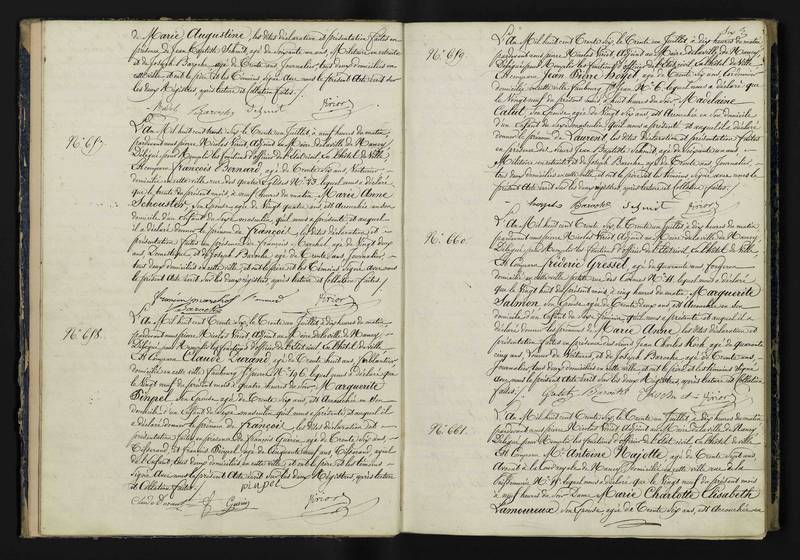 de Marie Augustine, les dites déclaration et présentation faites en
présence de Jean Baptiste Schmit, agé de soixante un ans, Militaire en retraite
et de Joseph Baroche, agé de Trente ans, Journalier, tous deux domiciliés en
cette ville et ont le père et les témoins signé avec nous le présent Acte écrit sur
les deux Registres après lecture et Collation faites /.
Baroche Schmit Virion
N.º 657.
L'An Mil huit cent trente Six, le Trente un Juillet à neuf heures du matin
pardevant nous pierre Nicolas Virion Adjoint au Maire de la ville de Nancy
Délégué pour Remplir les fonctions d'officier de l'état civil. En l'hôtel de Ville
Est comparu François Bernard, agé de Trente Six ans,
domicilié en cette ville rue des quatre Eglises N.º 73, lequel nous a déclaré
que le trente du présent mois à neuf heures du matin, Marie Anne
Schouster, Son Epouse, agée de Vingt quatre ans, est Accouchée en son
domicile d'un Enfant du Sexe masculin, qu'il nous a présenté et auquel
il a déclaré donner le prénom de François, les dites déclaration et
présentation faites en présence de François agé de Vingt deux
ans, Domestique et de Joseph Baroche, agé de Trente ans, Journalier,
tous deux domiciliés en cette ville, et ont le père et les témoins signé avec nous
le présent Acte écrit sur les deux Registres, après lecture et Collation faites /.
Baroche Virion
N.º 658.
L'An Mil huit cent Trente Six, le Trente un Juillet, à dix heures du matin,
pardevant nous pierre Nicolas Virion Adjoint au Maire de la ville de Nancy,
Délégué pour Remplir les fonctions d'officier de l'état civil. En l'hôtel de Ville
Est Comparu Claude Durand, agé de Trente huit ans, ferblantier,
domicilié en cette ville faubourg St Pierre N.º 196, lequel nous a déclaré que
le Vingt neuf du présent mois à quatre heures du soir, Marguerite
Pinpel, Son Epouse, agée de Trente Six ans, est Accouchée en son
domicile d'un Enfant du Sexe masculin qu'il nous a présenté et auquel il
a déclaré donner le prénom de François, les dites déclaration et
présentation faites en présence de François Guérin, agé de Trente Six ans,
Tisserand, et François Pinpel, agé de Cinquante neuf ans, Tisserand, ayeul
de l'Enfant, tous deux domiciliés en cette ville, et ont le père et les témoins
signé avec nous le présent Acte écrit sur les deux Registres, après lecture
et Collation faites. pinpel
Claude Durand F Guérin Virion
N.º 659.
L'An Mil huit cent Trente Six, le Trente un Juillet, à dix heures du matin
pardevant nous pierre Nicolas Virion Adjoint au Maire de la ville de Nancy,
Délégué pour Remplir les fonctions d'officier de l'état civil. En l'hôtel de Ville
Est comparu Jean Pierre agé de Trente Six ans, Cordonnier
domicilié en cette ville faubourg St Jean N.º 6, lequel nous a déclaré que
le Vingt neuf du présent mois à huit heures du soir Madelaine
Calut, Son Epouse, agée de Trente Six ans, est Accouchée en son domicile
d'un Enfant du Sexe masculin qu'il nous a présenté et auquel il a déclaré
donner le prénom de Laurent, les dites déclaration et présentation faites
en présence des sieurs Jean Baptiste Schmit, agé de Soixante un ans,
Militaire en retraite et de Joseph Baroche agé de Trente ans, Journalier,
tous deux domiciliés en cette ville, et ont le père et les témoins signé avec nous le
présent Acte écrit sur les deux registres, après lecture et Collation faites /.
Baroche Schmit Virion
N.º 660.
L'An Mil huit cent Trente Six, le Trente un Juillet, à dix heures du matin
pardevant nous pierre Nicolas Virion Adjoint au Maire de la ville de Nancy,
Délégué pour Remplir les fonctions d'officier de l'état civil. En l'hôtel de Ville,
Est Comparu Fréderic Gresset, agé de quarante ans, Forgeron
domicilié en cette ville N.º 11, lequel nous a déclaré
que le Vingt huit du présent mois à cinq heures du matin, Marguerite
Salmon, Son Epouse, agée de Trente deux ans, est Accouchée en son
domicile, d'un Enfant du Sexe féminin, qu'il nous a présenté et auquel il a
déclaré donner les prénoms de Marie Anne, les dites déclaration et
présentation faites en présence des sieurs Jean Charles Koch, agé de quarante
cinq ans, de Voitures, et de Joseph Baroche, agé de Trente ans,
Journalier, tous deux domiciliés en cette ville, et ont le père et les témoins signé
avec nous le présent Acte écrit sur les deux Registres, après lecture et Collation
faites /. Baroche Virion
N.º 661.
L'An Mil huit cent Trente Six, le Trente un Juillet, à dix heures du matin
pardevant nous pierre Nicolas Virion Adjoint au Maire de la ville de Nancy
Délégué pour Remplir les fonctions d'officier de l'état civil. En l'hôtel de Ville
Est Comparu M.r Antoine Najotte, agé de Trente Sept ans
Avocat à la Cour royale de Nancy, Domicilié en cette ville rue de la
N.º 11, lequel nous a déclaré que le Vingt neuf du présent mois
à neuf heures du soir Dame Marie Charlotte Elisabeth
Lamoureux, Son Epouse, agée de Trente Six ans, est Accouchée en